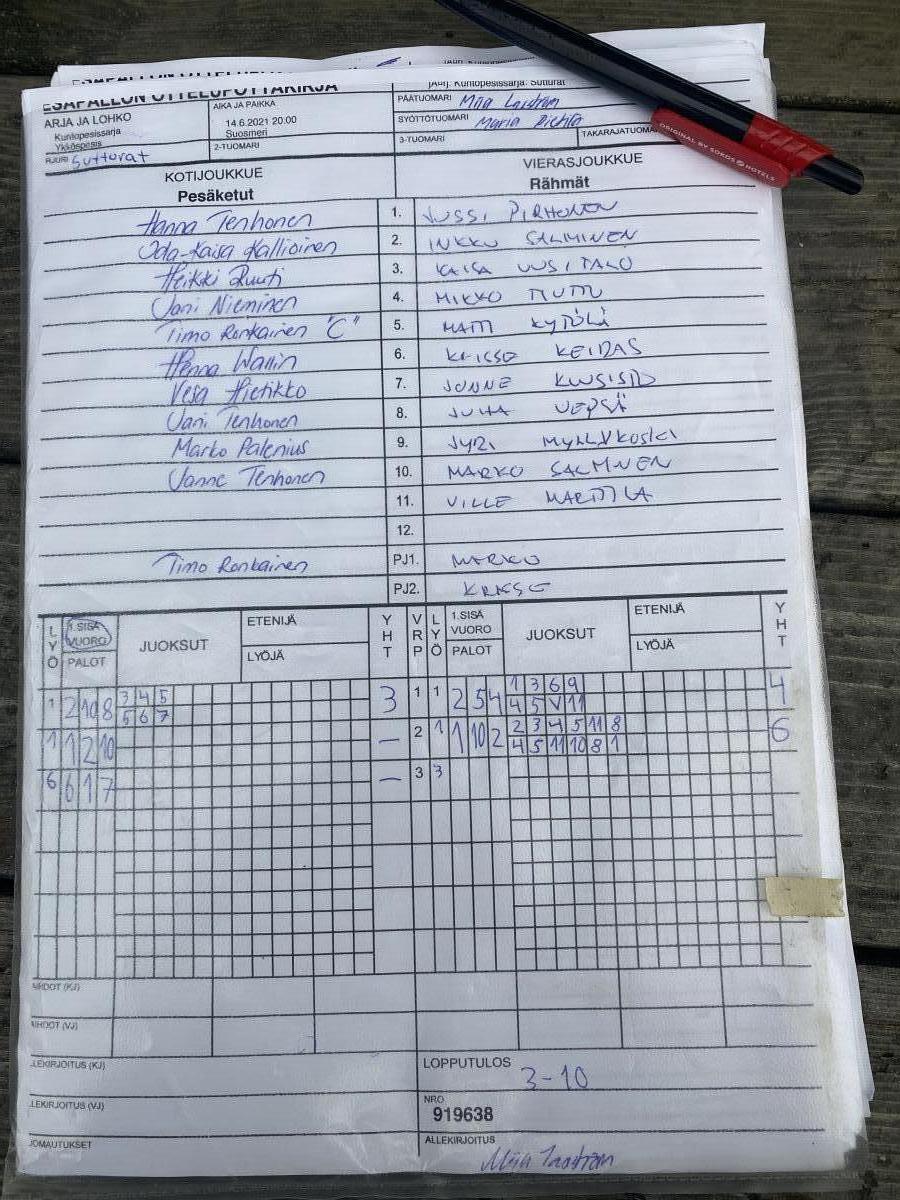 ESÄPALLON OTTELUPÖYTÄKIRJA
[Alh]: Kuntopesissarja: Sutturat
ARJA JA LOHKO
Kuntopesissarja
Ykköspesis
AIKA JA PAIKKA
14.6.2021 20:00
Suosmeri
PÄÄTUOMARI Miia
SYÖTTÖTUOMARI Maria
RJURI Sutturat
2-TUOMARI
3-TUOMARI
TAKARAJATUOM
ORIGINAL BY SOKOS HOTELS
KOTIJOUKKUE
Pesäketut
VIERASJOUKKUE
Rähmät
Hanna Tenhonen 1. JUSSI PIRHONEN
Oda-Kaisa Kallioinen 2. INKKU SALMINEN
Heikki Ruuti 3. KAISA UUSITALO
Jani Nieminen 4. MIKKO
Timo Ronkainen "C" 5. MATTI KYTÖLÄ
Henna Wallin 6. KRISSE KEIDAS
Vesa Hietikko 7. JONNE KUUSISTO
Jani Tenhonen 8. JUHA VEPSÄ
Marko Palenius 9. JYRI MYLLYKOSKI
Janne Tenhonen 10. MARKO SALMINEN
11. VILLE MARTTILA
12.
Timo Ronkainen PJ1. MARKO
PJ2. KRISSE
LYÖ 1.SISÄ VUORO PALOT JUOKSUT ETENIJÄ LYÖJÄ YHT VRP LYÖ 1.SISÄ VUORO PALOT JUOKSUT ETENIJÄ LYÖJÄ YHT
1 2 10 8 3 4 5 3 1 1 2 5 4 1 3 6 9 4
5 6 7 4 5 V 11
1 1 2 10 – 2 1 1 10 2 2 3 4 5 11 8 6
4 5 11 10 8 1
6 6 1 7 – 3 3
HDOT (KJ)
HDOT (VJ)
LEKIRJOITUS (KJ)
LOPPUTULOS 3-10
LEKIRJOITUS (VJ)
NRO
919638
OMAUTUKSET
ALLEKIRJOITUS
Miia